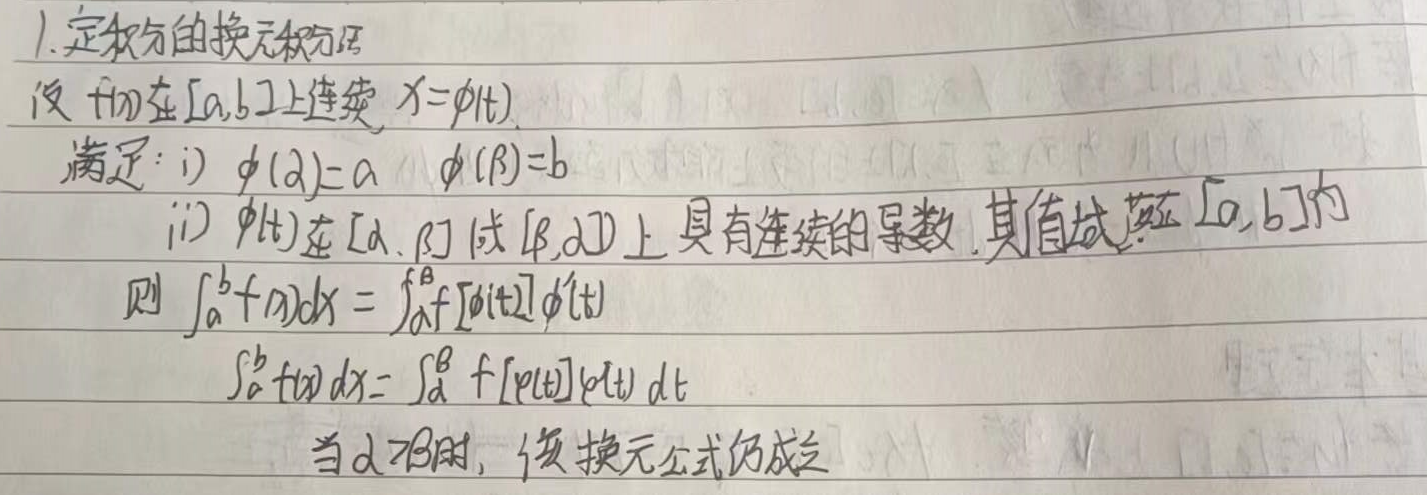 1.定积分的换元积分法
设 f(x)在[a,b]上连续, x=φ(t).
满足: i) φ(α)=a φ(β)=b
ii) φ(t)在[α,β](或[β,α])上具有连续的导数,其值域落在[a,b]内
则 ∫ₐᵇf(x)dx = ∫_α^β f[φ(t)]φ'(t)
∫ₐᵇf(x)dx = ∫_α^β f[φ(t)]φ'(t) dt
当α>β时, 该换元公式仍成立